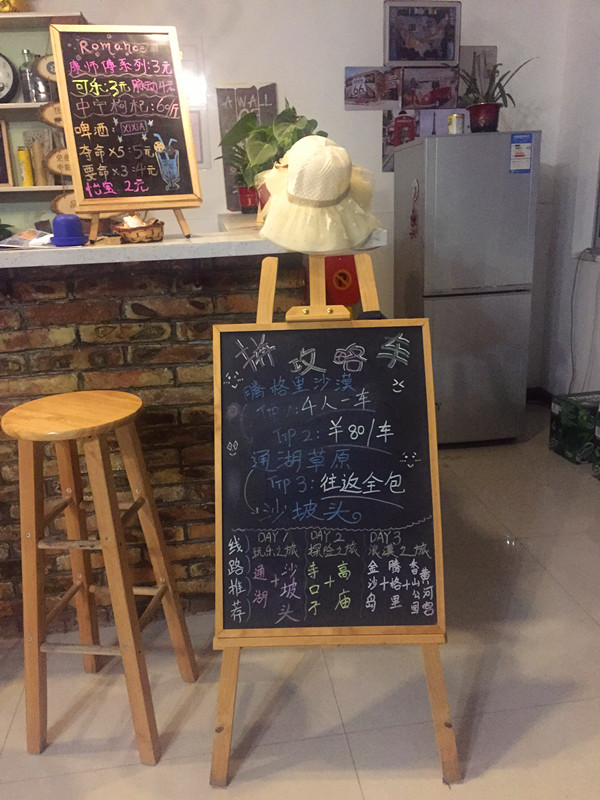 Romance
康师傅系列:3元
可乐:3元 脉动4元
中宁枸杞:60/斤
啤酒 XIXIA
夺命×5:5元
要命×3:4元
怡宝 2元
A WALL
拼 攻 略 车
腾格里沙漠
Tip 1:4人一车
Tip 2:￥80/车
通湖草原
Tip 3:往返全包
沙坡头
线路推荐
DAY 1
玩乐之旅
通湖+沙坡头
DAY 2
探险之旅
寺口子+高庙
DAY 3
浪漫之旅
金沙岛+腾格里+香山公园+黄河宫